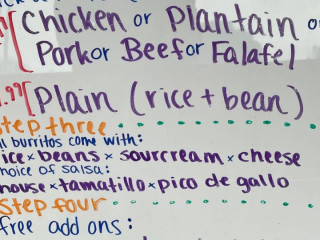 Chicken or Plantain
Pork or Beef or Falafel
.99 [ Plain (rice + bean)
step three
burritos come with:
ice × beans × sourcream × cheese
choice of salsa:
house × tamatillo × pico de gallo
step four
free add ons: